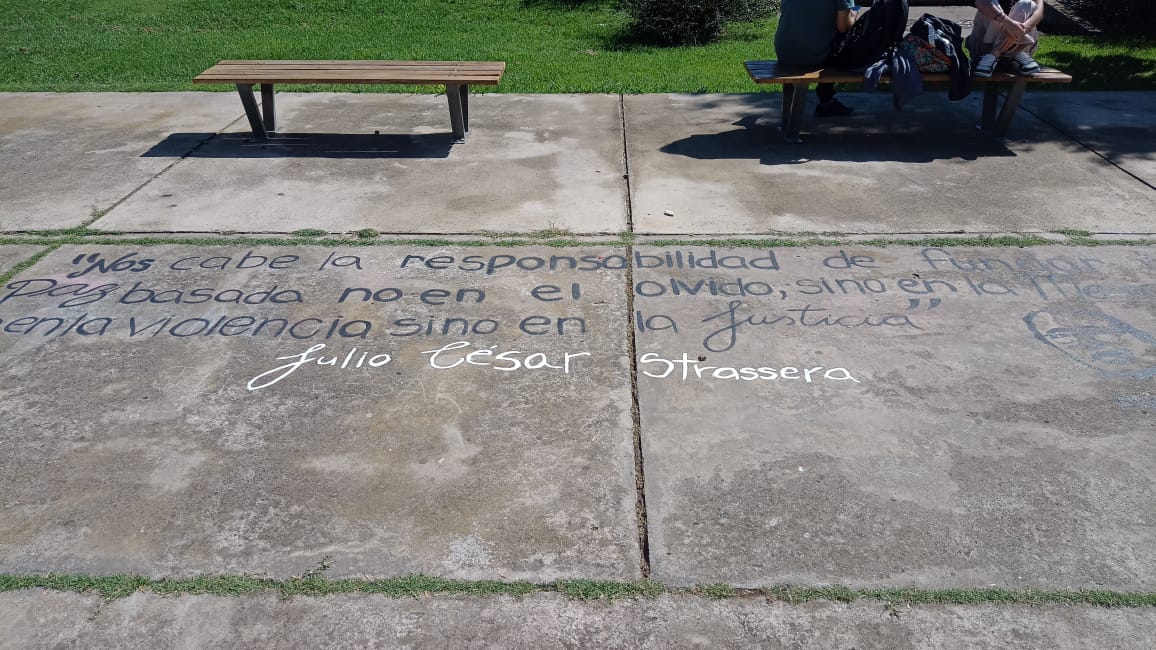 "Nos cabe la responsabilidad de fundar
Paz basada no en el olvido, sino en la Me
en la violencia sino en la Justicia"
Julio César Strassera